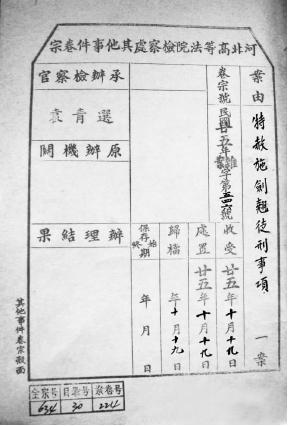 河北高等法院檢察處其他事件卷宗
案由
特赦施劍翹徒刑事項
一案
卷宗號
民國廿五年雜字第 號
收受
廿五年十月十九日
處置
廿五年十月十九日
歸檔
年十月十九日
保存
始
終
期
年月日
承辦檢察官
袁青選
原辦機關
辦理結果
其他事件卷宗殼面
全宗号
目录号
案卷号
634
30
2214